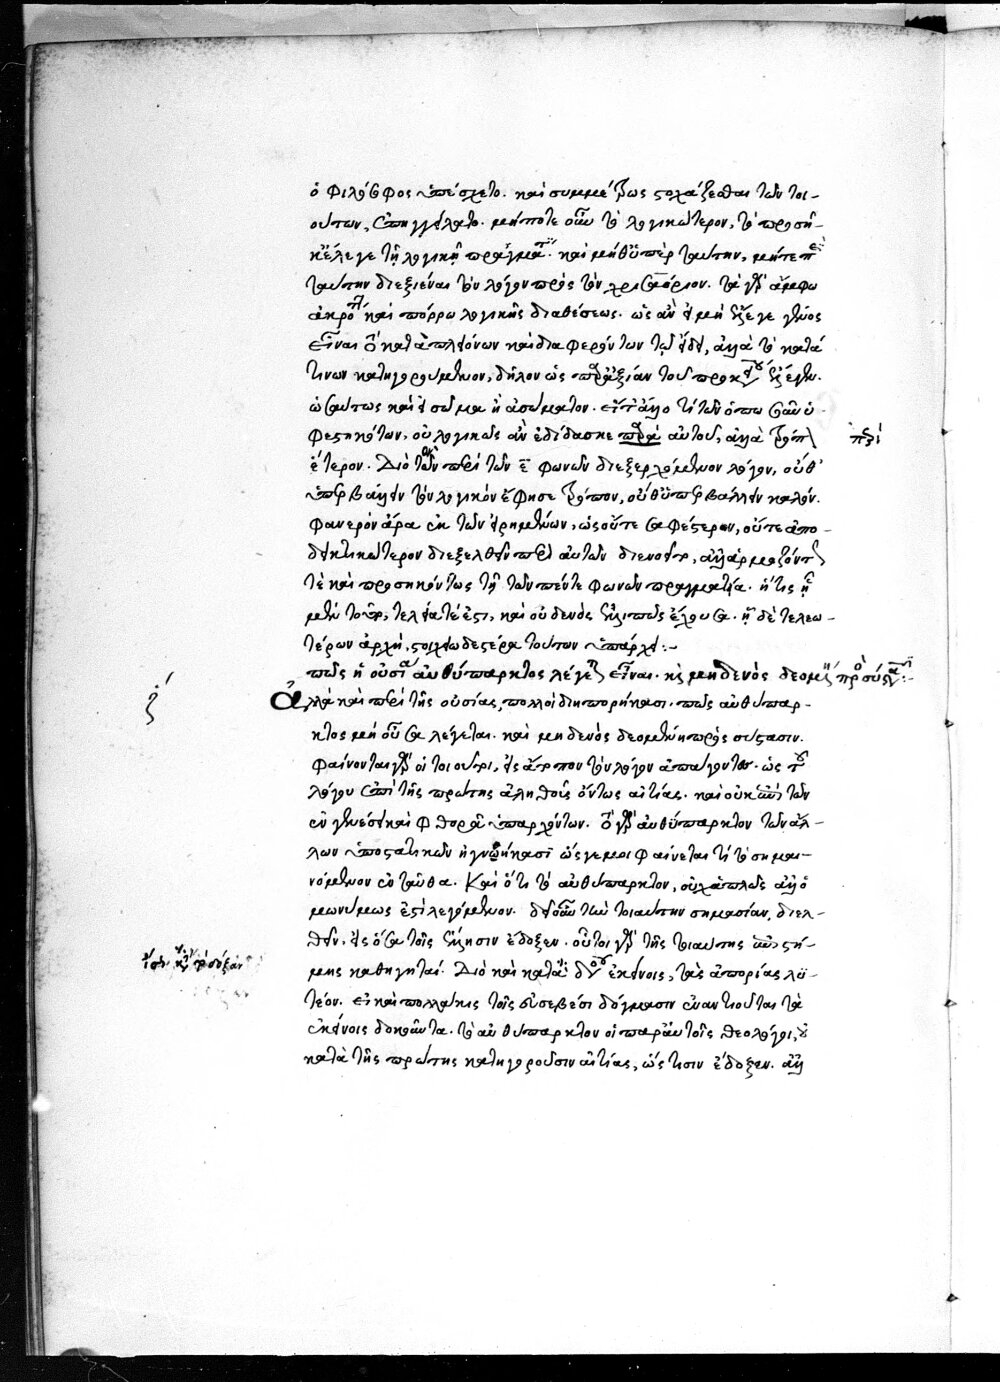 ὁ φιλόσοφος ὑπέσχετο. καὶ συμμέτρως στοχάζεσθαι τῶν τοι-
ούτων, ἐπηγγείλατο. μήποτε οὖν τὸ λογικώτερον, τὸ προσῆ-
κον ἔλεγε τῇ λογικῇ πραγματείᾳ. καὶ μὴ θ' ὑπὲρ ταύτην, μήτε περὶ
ταύτην διεξιέναι τὸν λόγον πρὸς τὸν χρισαόριον. τὰ γὰρ ἄμφω
καὶ πόρρω λογικῆς διαθέσεως. ὡς ἂν εἰ μὴ ἔλεγε γένος
εἶναι τὸ κατὰ πλειόνων καὶ διαφερόντων τῷ εἴδει, ἀλλὰ τὸ κατά
τινων κατηγορούμενον, δῆλον ὡς παρ' ἀξίαν τοῦ προκειμένου
ὡσαύτως καὶ εἰ σῶμα ἢ ἀσώματον. εἴτ' ἄλλο τι τῶν ὁπωσοῦν ὑ-
φεστηκότων, οὐ λογικῶς ἂν ἐδίδασκε παρὰ αὐτοῦ, ἀλλὰ τρόπον
περί
ἕτερον. Διὸ τὸν περὶ τῶν ε φωνῶν διεξερχόμενον λόγον, οὔθ'
ὑπερβαλεῖν τὸν λογικὸν ἔφησε τρόπον, οὔθ' ὑπερβάλλειν καλόν.
φανερὸν ἄρα ἐκ τῶν εἰρημένων, ὡς οὔτε σαφέστερον, οὔτε ἀπο-
δεικτικώτερον διεξελθεῖν περὶ αὐτῶν διενοεῖτο, ἀλλ' ἁρμοζόντως
τὲ καὶ προσηκόντως τῇ τῶν πέντε φωνῶν πραγματεία. ἥτις
μὲν τελεία τέ ἐστι, καὶ οὐδενὸς ἐλλιπῶς ἔχουσα. ἡ δὲ τελεω-
τέρων ἀρχὴ, στοιχειωδεστέρα τούτων ὑπάρχει:-
πῶς ἡ οὐσία αὐθύπαρκτος λέγεται εἶναι. καὶ μηδενὸς δεομένη πρὸς σύστασιν:-
ζ
Ἀλλὰ καὶ περὶ τῆς οὐσίας, πολλοὶ διηπορήκασι. πῶς αὐθύπαρ-
κτος μὴ οὖσα λέγεται. καὶ μηδενὸς δεομένη πρὸς σύστασιν.
φαίνονται γὰρ οἱ τοιοῦτοι, εἰς ἄτοπον τὸν λόγον ἀπαγαγόντες. ὡς τοῦ
λόγου ἐπὶ τῆς πρώτης ἀληθοῦς ὄντως αἰτίας. καὶ οὐκ ἐπὶ τῶν
ἐν γενέσει καὶ φθορᾷ ὑπαρχόντων. τὸ γὰρ αὐθύπαρκτον τῶν ἄλ-
λων ὑποστατικῶν ἠγνοήκασι ὥς γέ μοι φαίνεται τί τὸ σημαι-
νόμενον ἐνταῦθα. Καὶ ὅτι τὸ αὐθύπαρκτον, οὐχ ἁπλῶς ἀλλ' ὁ-
μωνύμως ἐστὶ λεγόμενον. δεῖ οὖν τὴν τοιαύτην σημασίαν, διελ-
θεῖν, εἰς ὅσα τοῖς ἕλλησιν ἔδοξεν. οὗτοι γὰρ τῆς τοιαύτης ἐπιστή-
μης καθηγηταί. Διὸ καὶ κατὰ τὸ δοκοῦν ἐκείνοις, τὰς ἀπορίας λυ-
τέον. εἰ καὶ πολλάκις τοῖς εὐσεβέσι δόγμασιν ἐναντιοῦται τὰ
ἐκείνοις δοκοῦντα. τὸ αὐθύπαρκτον οἱ παρ' αὐτοῖς θεολόγοι,
κατὰ τῆς πρώτης κατηγοροῦσιν αἰτίας, ὥς τισιν ἔδοξεν. ἀλλ